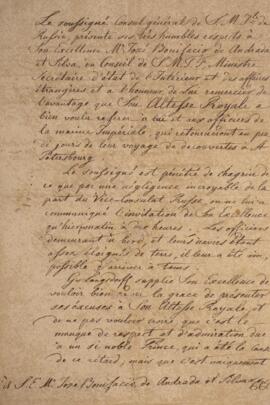 Le soussigné Consul général de S. M. I. de
Russie, présente ses très humbles respects à
Son Excellence Mr José Bonifacio de Andrada
et Silva, du Conseil de S. M. T. F. Ministre
Secrétaire d'état de l'Intérieur et des affaires
étrangères et a l'honneur de Lui remercier de
l'avantage que Son Altesse Royale a
bien voulu à lui et aux officiers de
la marine Impériale, qui retourneront en peu
de jours de leur voyage de découvertes à St
Petersbourg.
Le Soussigné est pénétré de chagrin de
ce que par une négligence incroyable de la
part du Vice-Consulat Russe on ne lui a
communiqué l'invitation de Son Excellence
qu'hier matin à dix heures. Les officiers
demeurant à bord, et leurs navires étant
assez éloignés de terre, il leur a été im-
possible d'arriver à tems.
G. Langsdorff supplie Son Excellence de
vouloir bien la grace de présenter
ses excuses à Son Altesse Royale, et
de ne pas vouloir croire que c'est le
manque de respect et d'admiration due
à un si noble Prince, qui a été la cause
de ce retard, mais que c'est uniquement
à S. E. Mr José Bonifacio de Andrada et Silva